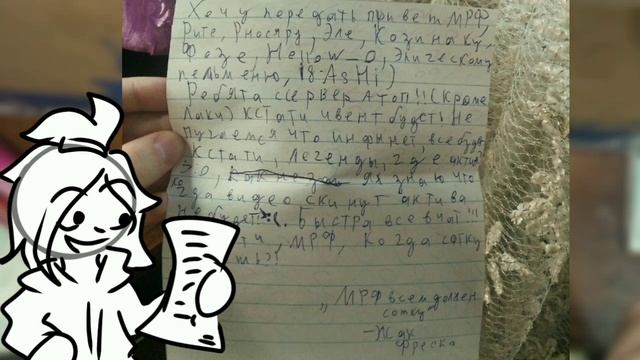 Хочу передать привет МРФ,
Рите, Рносяру, Эле, Козинаку,
Фозе, Hellow_O, Эпическому
пельменю, 18.AsHi)
Ребята сервер Атоп!!! (Кроме
Лаки) Кстати ивент будет! Не
пугаемся что инфы нет, все буде
Кстати, легенды, где актив
я знаю что
да видео скинут актива
не будет :(. Быстра все в чат!!!
ти, МРФ, когда сотку
ть?!
„МРФ всем должен
сотку"
- Жак
Фреско